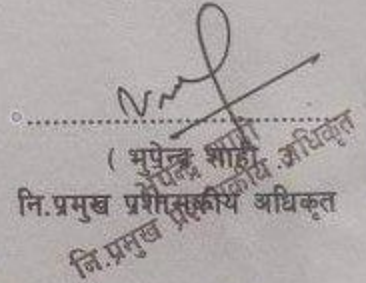 ( भुपेन्द्र शाही
नि.प्रमुख प्रशासकीय अधिकृत
नि.प्रमुख प्रशासकीय अधिकृत